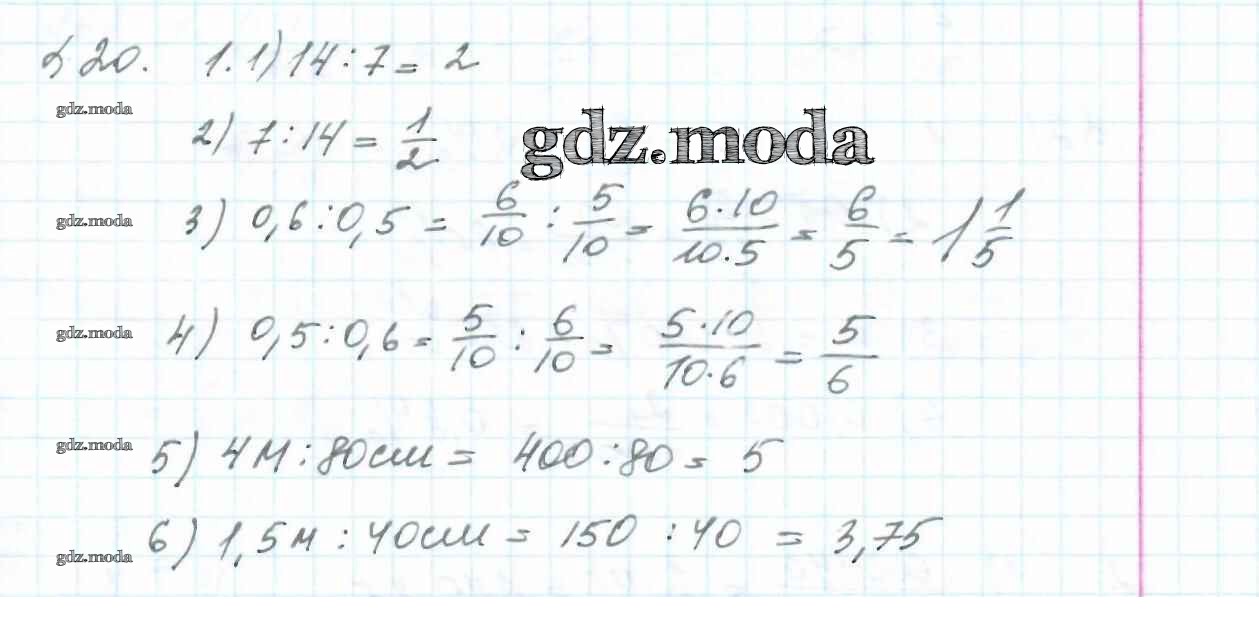 § 20. 1. 1) 14 : 7 = 2
gdz.moda
2) 7 : 14 = 1/2
gdz.moda
gdz.moda
3) 0,6 : 0,5 = 6/10 : 5/10 = 6·10/10·5 = 6/5 = 1 1/5
gdz.moda
4) 0,5 : 0,6 = 5/10 : 6/10 = 5·10/10·6 = 5/6
gdz.moda
5) 4 м : 80 см = 400 : 80 = 5
gdz.moda
6) 1,5 м : 40 см = 150 : 40 = 3,75